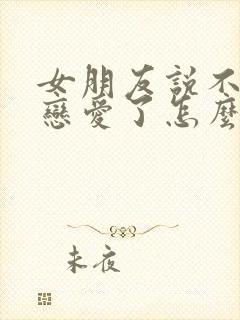 女朋友説不
戀愛了怎麼
未夜